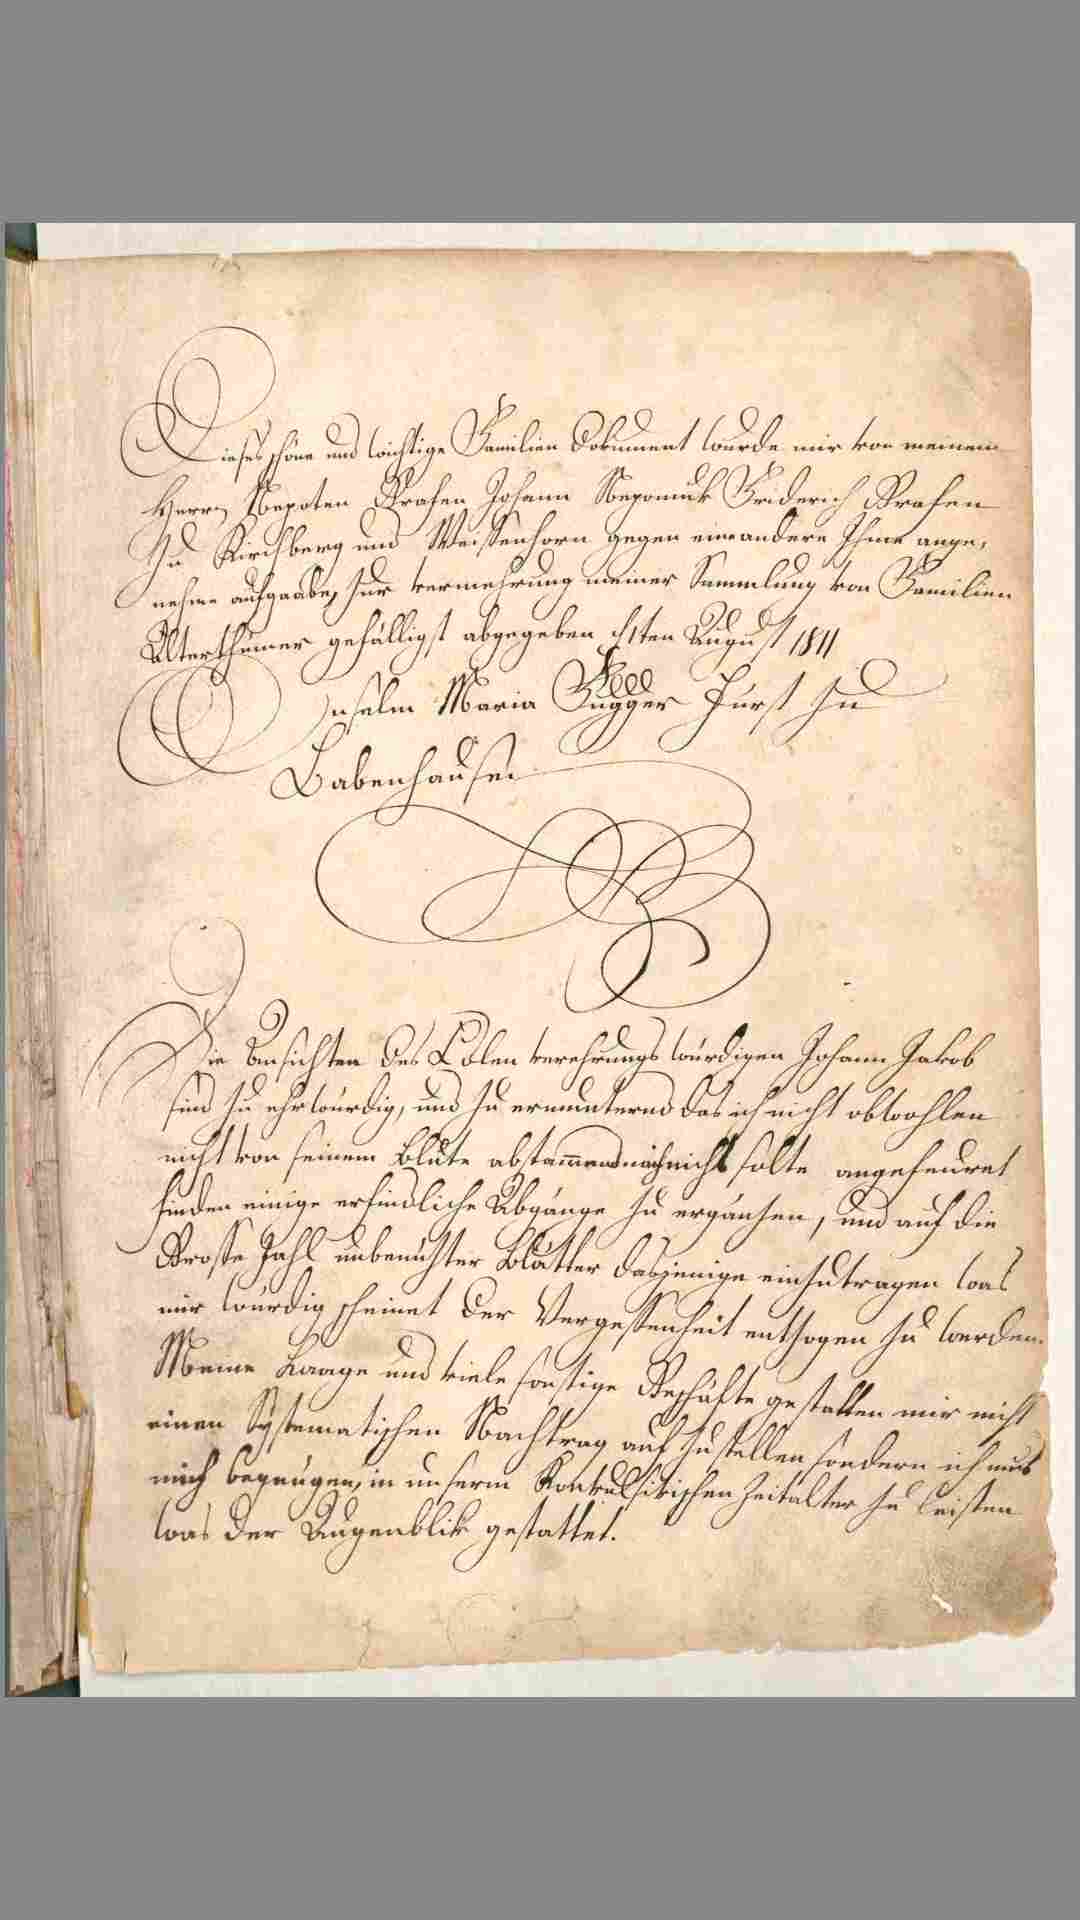 Dieses schöne und wichtige Familien Dokument wurde mir von meinem
Herrn Nepoten Grafen Johann Nepomuk Friderich Grafen
zu Kirchberg und Weissenhorn gegen eine andere Ihme ange,
nehme aufgaabe, zur vermehrung meiner Sammlung von Familien
Alterthümer gefälligst abgegeben ten August 1811
Anselm Maria Fugger Fürst zu
Babenhausen
Die Ansichten des Edlen verehrungs würdigen Johann Jakob
sind zu ehrwürdig, und zu ermunternd das ich nicht obwohlen
nicht von seinem Blute abstammend mich nicht solte angefeuret
finden einige erfindliche Abgänge zu ergänzen, und auf die
Grosse Zahl unbenüzter Blätter dasjenige einzutragen was
mir würdig scheinet der Vergessenheit entzogen zu werden.
Meine Laage und viele sonstige Geschäfte gestatten mir nicht
einen Systematischen Nachtrag auf zustellen sondern ich mus
mich begnügen, in unserm Konvulsivischen Zeitalter zu leisten
was der Augenblik gestattet.